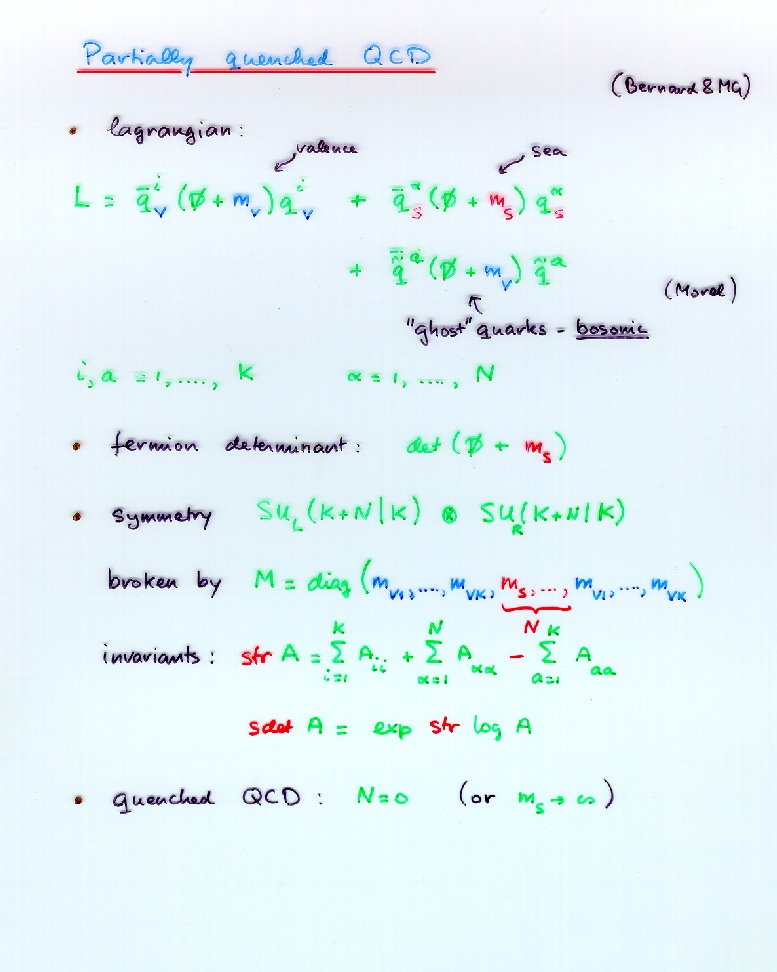 Partially quenched QCD
(Bernard & MG)
• lagrangian:
valence
sea
L = q̄ᵢᵥ (D̸ + m_v) qᵢᵥ + q̄^α_s (D̸ + m_s) q^α_s
+ q̃̄^a (D̸ + m_v) q̃^a
(Morel)
"ghost" quarks - bosonic
i, a = 1, ...., K α = 1, ...., N
• fermion determinant: det (D̸ + m_s)
• symmetry SU_L (K+N|K) ⊗ SU_R (K+N|K)
broken by M = diag (m_v1, ..., m_vK, m_s, ..., m_v1, ..., m_vK)
N
invariants: str A = Σ_{i=1}^{K} A_ii + Σ_{α=1}^{N} A_αα - Σ_{a=1}^{K} A_aa
sdet A = exp str log A
• quenched QCD: N=0 (or m_s → ∞)